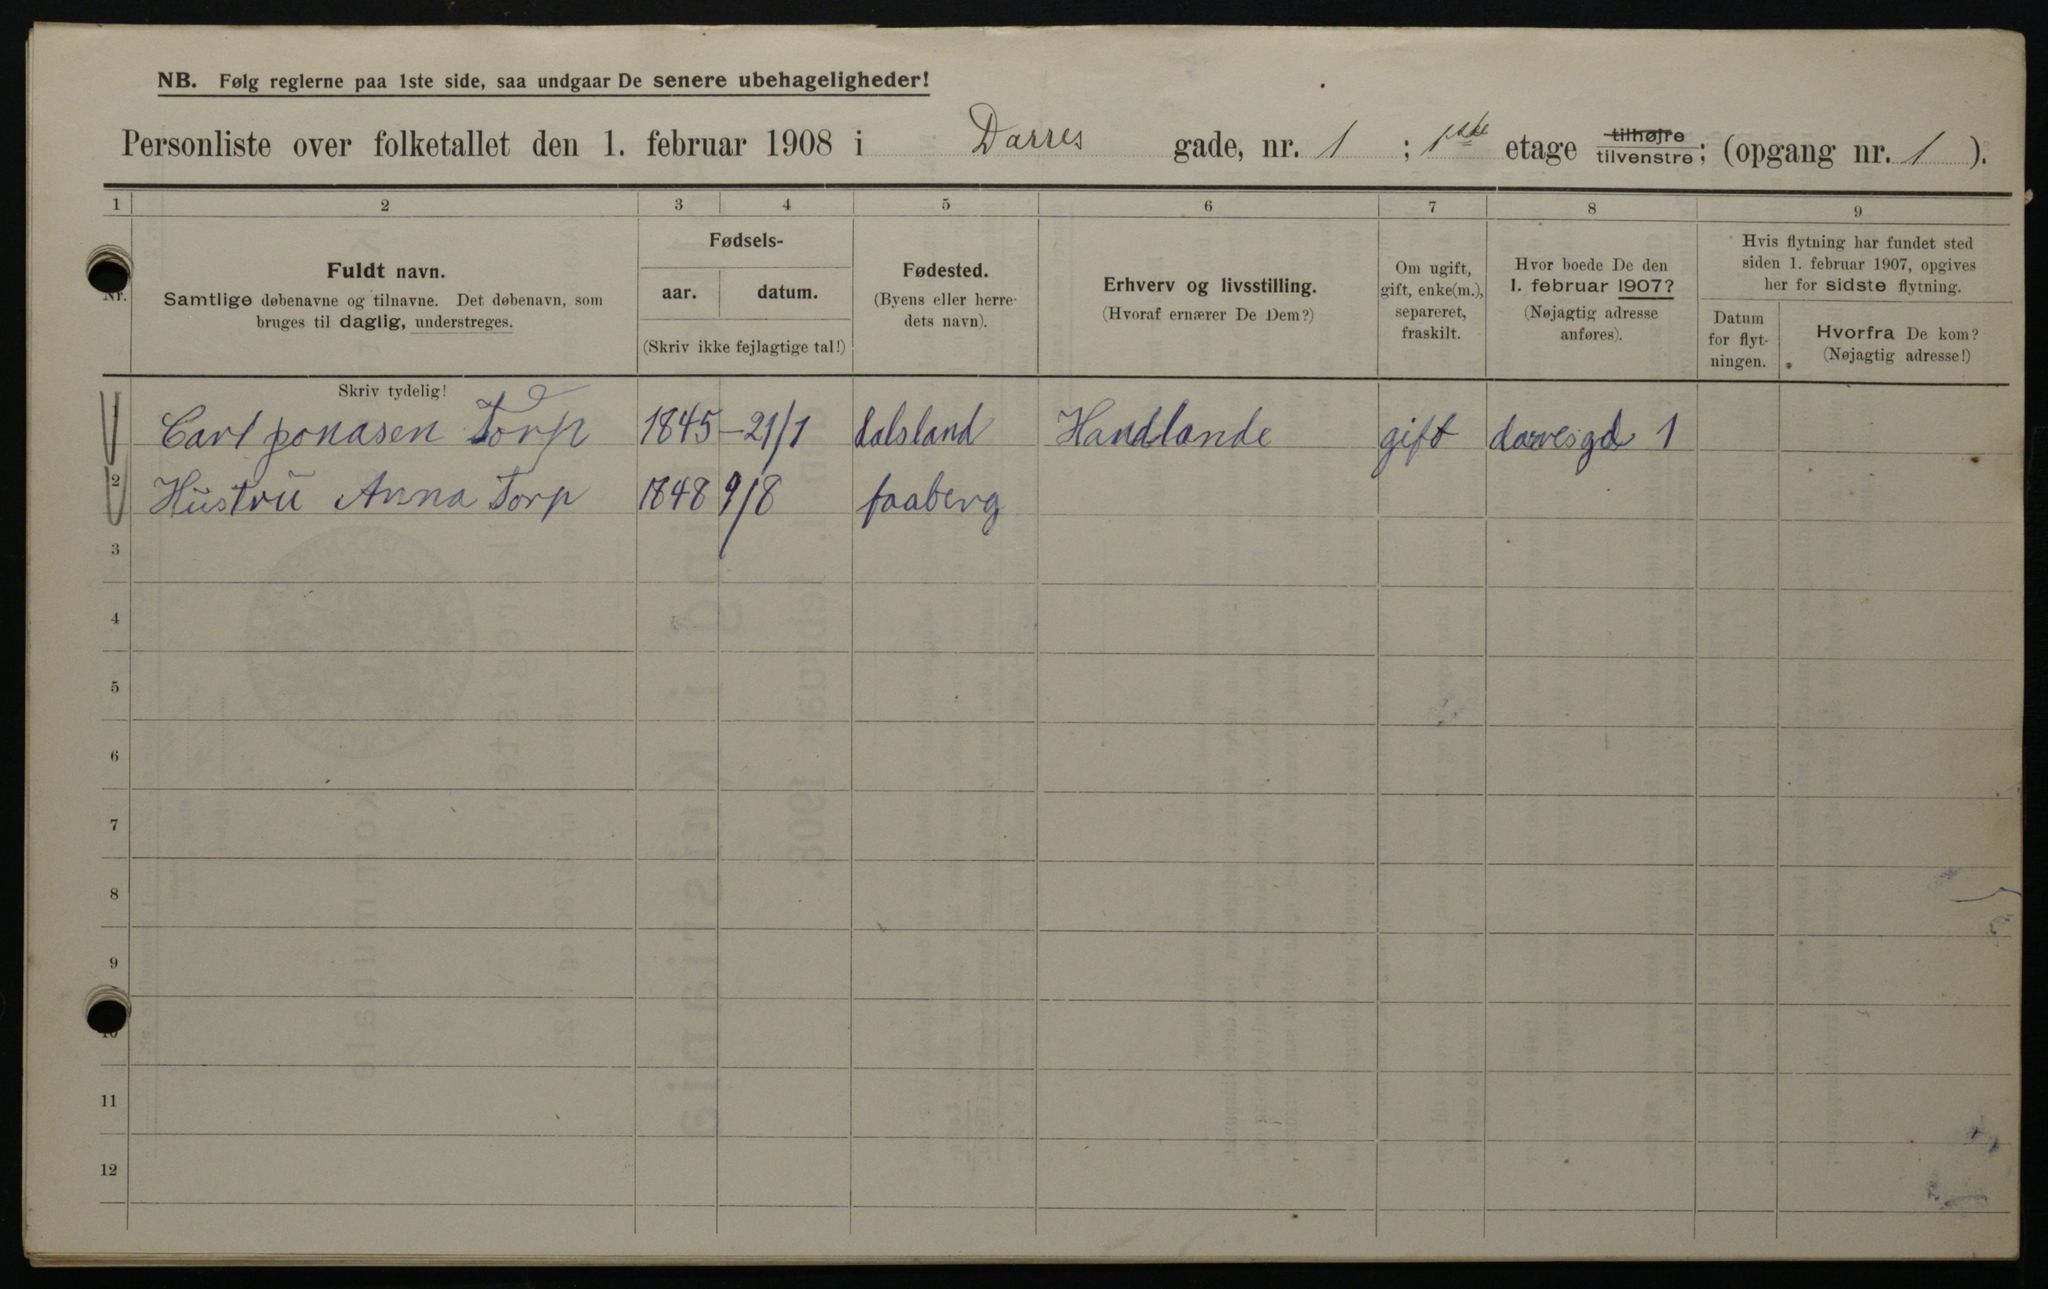 NB. Følg reglerne paa 1ste side, saa undgaar De senere ubehageligheder!
Personliste over folketallet den 1. februar 1908 i Darres gade, nr. 1 ; 1ste etage tilhøjre tilvenstre; (opgang nr. 1 ).
1 2 3 4 5 6 7 8 9
Nr.
Fuldt navn.
Samtlige døbenavne og tilnavne. Det døbenavn, som
bruges til daglig, understreges.
Skriv tydelig!
Fødsels-
aar. datum.
(Skriv ikke fejlagtige tal!)
Fødested.
(Byens eller herre-
dets navn).
Erhverv og livsstilling.
(Hvoraf ernærer De Dem?)
Om ugift,
gift, enke(m.),
separeret,
fraskilt.
Hvor boede De den
1. februar 1907?
(Nøjagtig adresse
anføres).
Hvis flytning har fundet sted
siden 1. februar 1907, opgives
her for sidste flytning.
Datum
for flyt-
ningen.
Hvorfra De kom?
(Nøjagtig adresse!)
1 Carl Jonasen Torp 1845 - 21/1 dalsland Handlande gift darresgd 1
2 Hustru Anna Torp 1848 9/8 faaberg
3
4
5
6
7
8
9
10
11
12